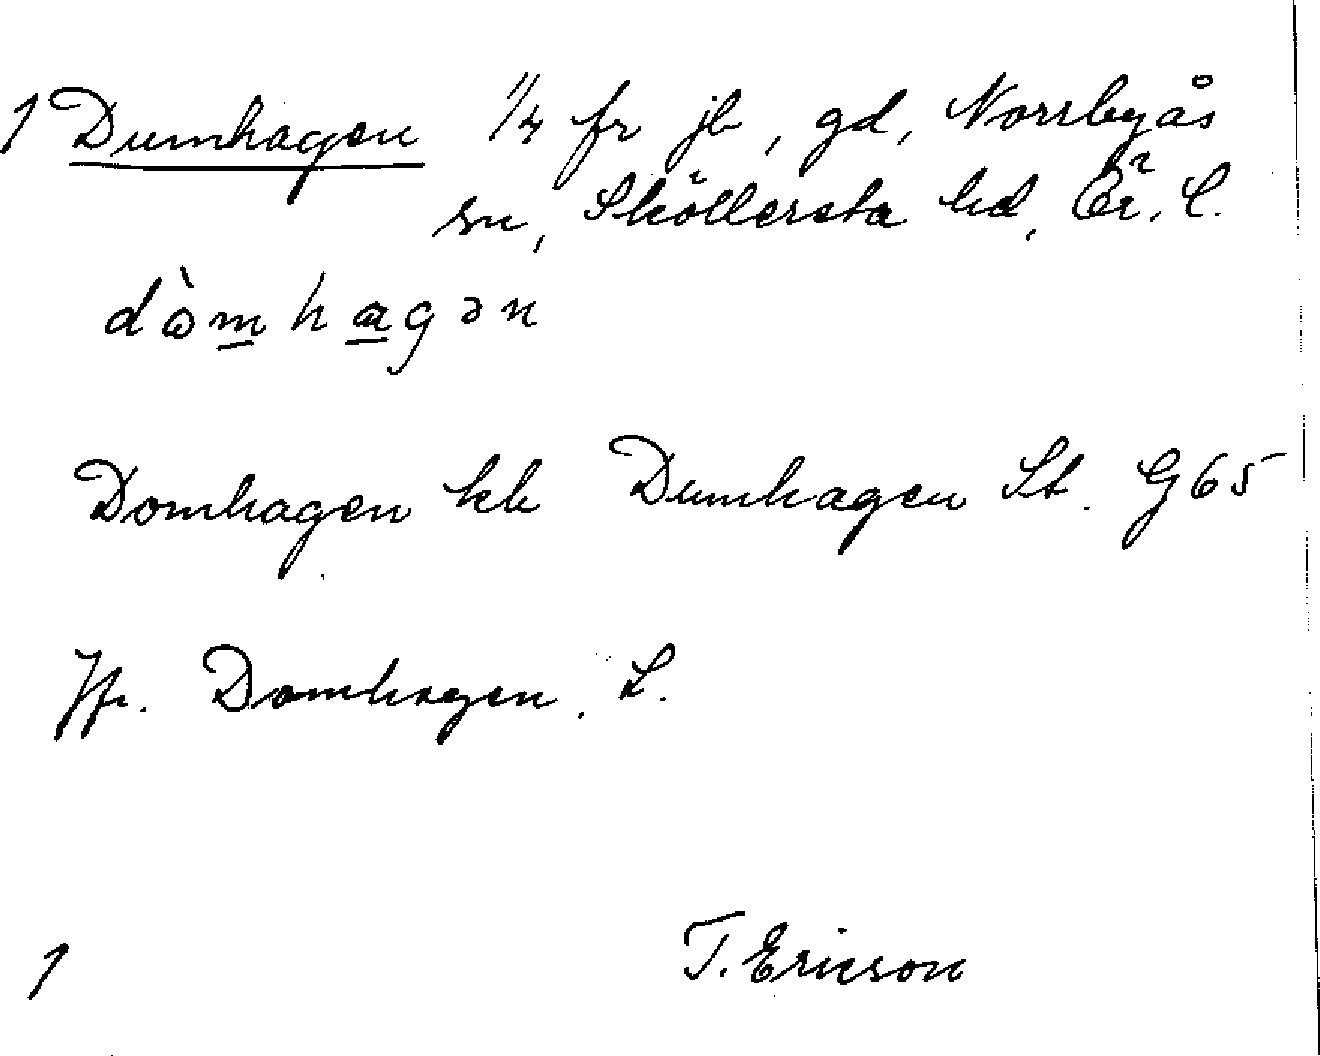 1 Dumhagen 1/4 fr jb, gd, Norrbyås
sn, Sköllersta hd, Ör. l.
dòmhagən
Domhagen kb Dumhagen St. G65
Jfr. Domhagen. L.
1 T. Ericson